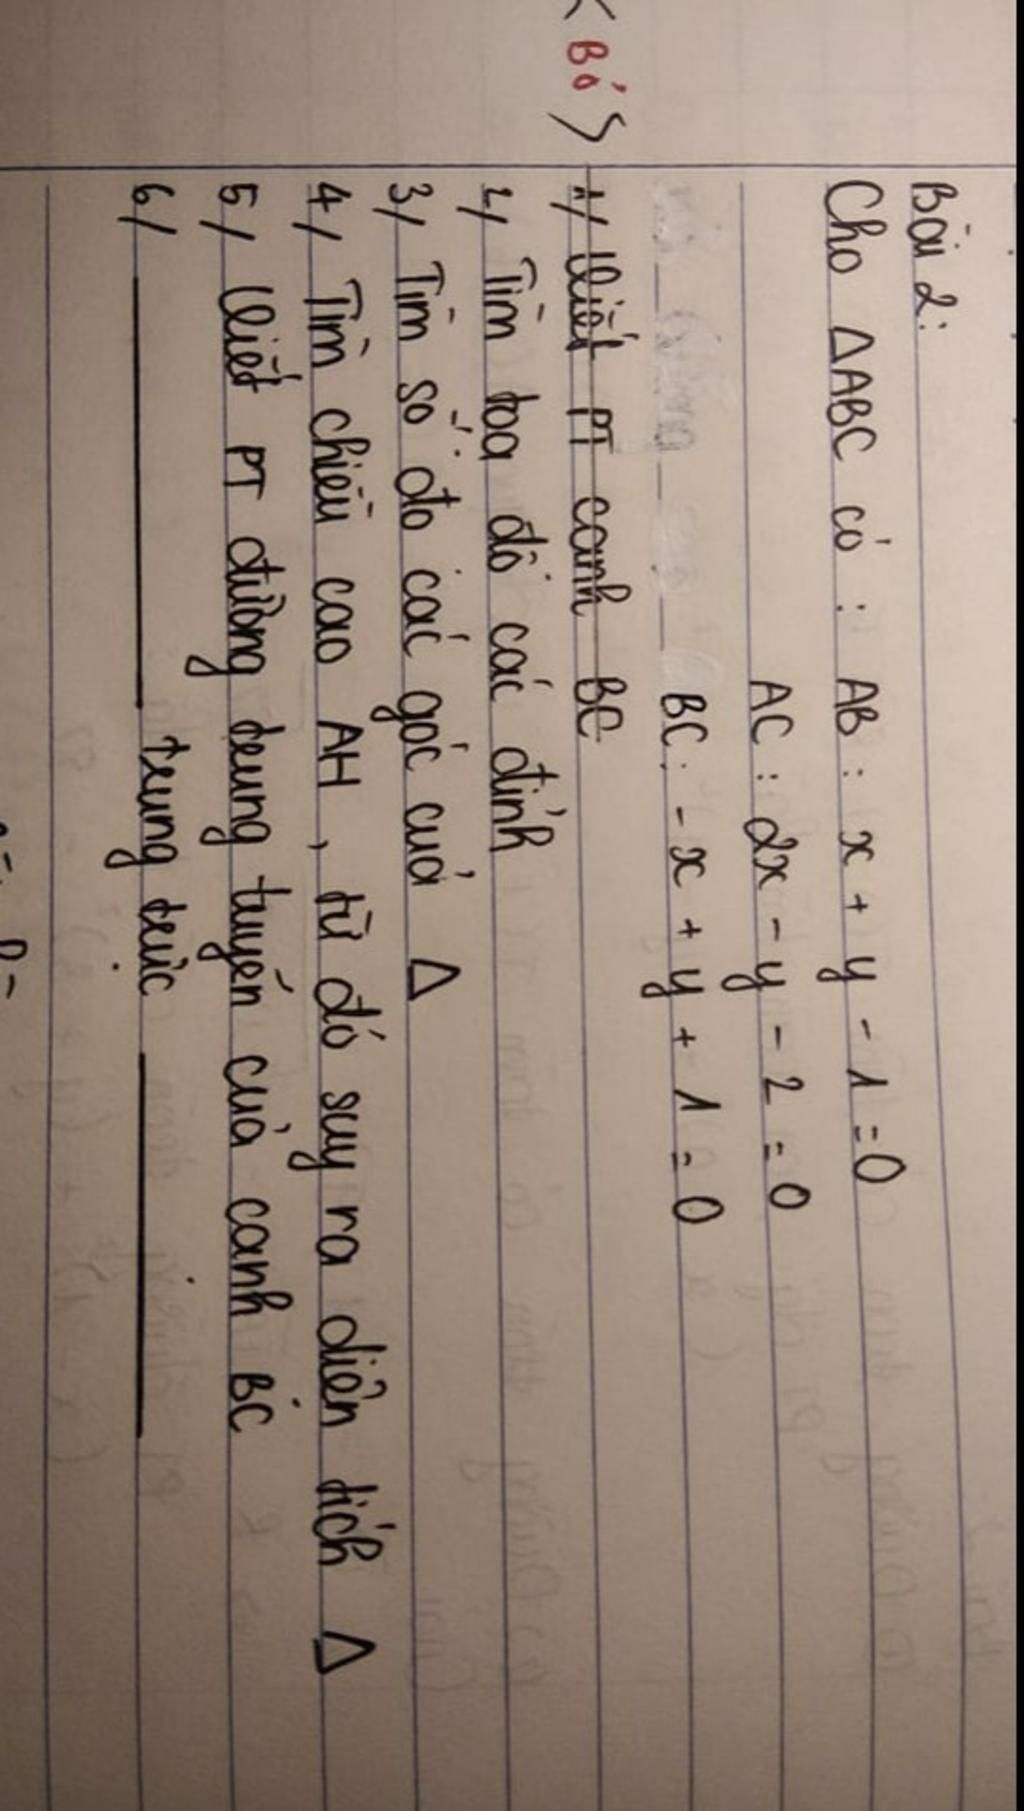 Bài 2:
Cho ΔABC có : AB : x + y - 1 = 0
AC : 2x - y - 2 = 0
BC : - x + y + 1 = 0
< Bỏ > 1/ Viết PT cạnh BC
2/ Tìm tọa độ các đỉnh
3/ Tìm số đo các góc của Δ
4/ Tìm chiều cao AH , từ đó suy ra diện tích Δ
5/ Viết PT đường trung tuyến của cạnh BC
6/ ———— trung trực ————